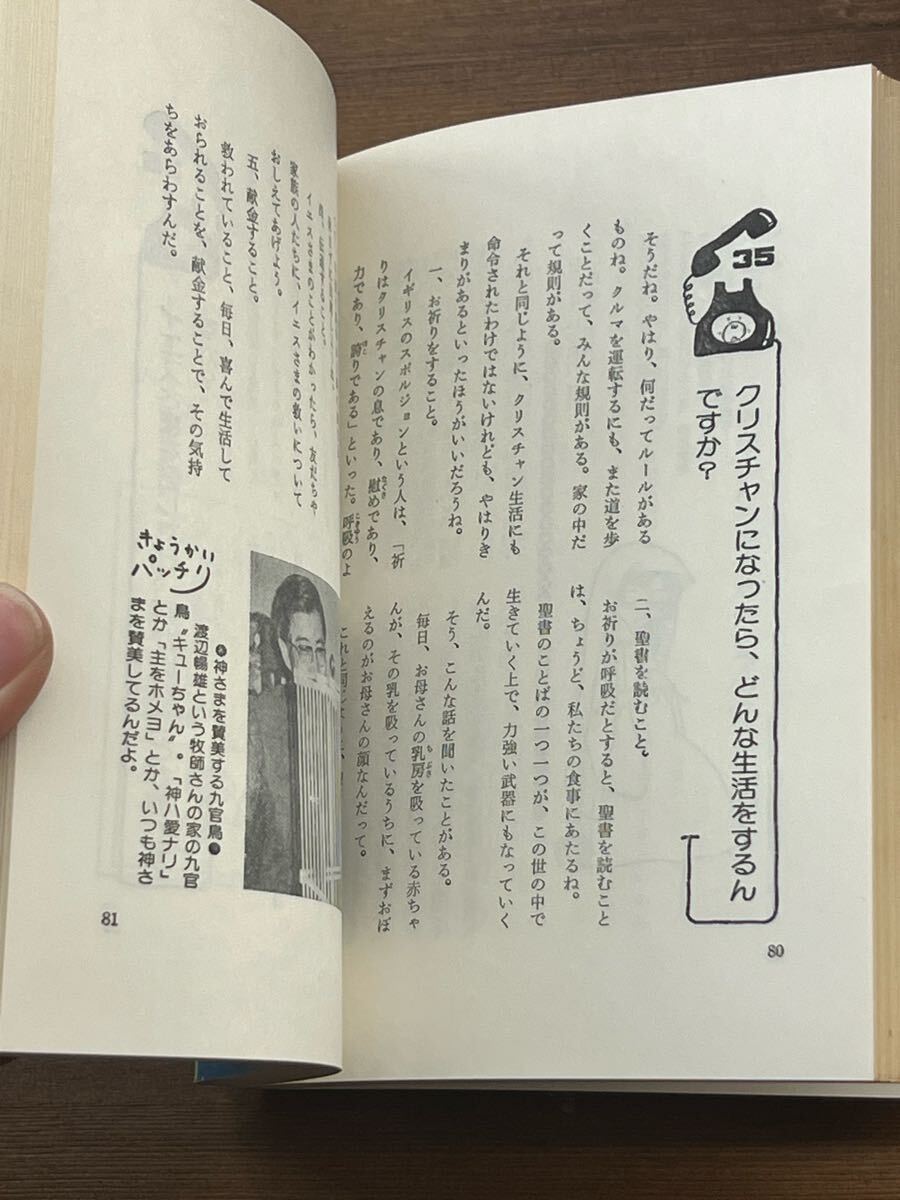 35
クリスチャンになったら、どんな生活をするん
ですか?
そうだね。やはり、何だってルールがある
ものね。クルマを運転するにも、また道を歩
くことだって、みんな規則がある。家の中だ
って規則がある。
それと同じように、クリスチャン生活にも
命令されたわけではないけれども、やはりき
まりがあるといったほうがいいだろうね。
一、お祈りをすること。
イギリスのスポルジョンという人は、「祈
りはクリスチャンの息であり、慰めであり、
力であり、誇りである」といった。呼吸のよ
二、聖書を読むこと。
お祈りが呼吸だとすると、聖書を読むこと
は、ちょうど、私たちの食事にあたるね。
聖書のことばの一つ一つが、この世の中で
生きていく上で、力強い武器にもなっていく
んだ。
そう、こんな話を聞いたことがある。
毎日、お母さんの乳房を吸っている赤ちゃ
んが、その乳を吸っているうちに、まずおぼ
えるのがお母さんの顔なんだって。
80
イエスさまのことがわかったら、友だちや
家族の人たちに、イエスさまの救いについて
おしえてあげよう。
五、献金すること。
救われていること、毎日、喜んで生活して
おられることを、献金することで、その気持
ちをあらわすんだ。
きょうかい
パッチリ
●神さまを賛美する九官鳥●
渡辺暢雄という牧師さんの家の九官
鳥〝キューちゃん〟。「神ハ愛ナリ」
とか「主をホメヨ」とか、いつも神さ
まを賛美してるんだよ。
81